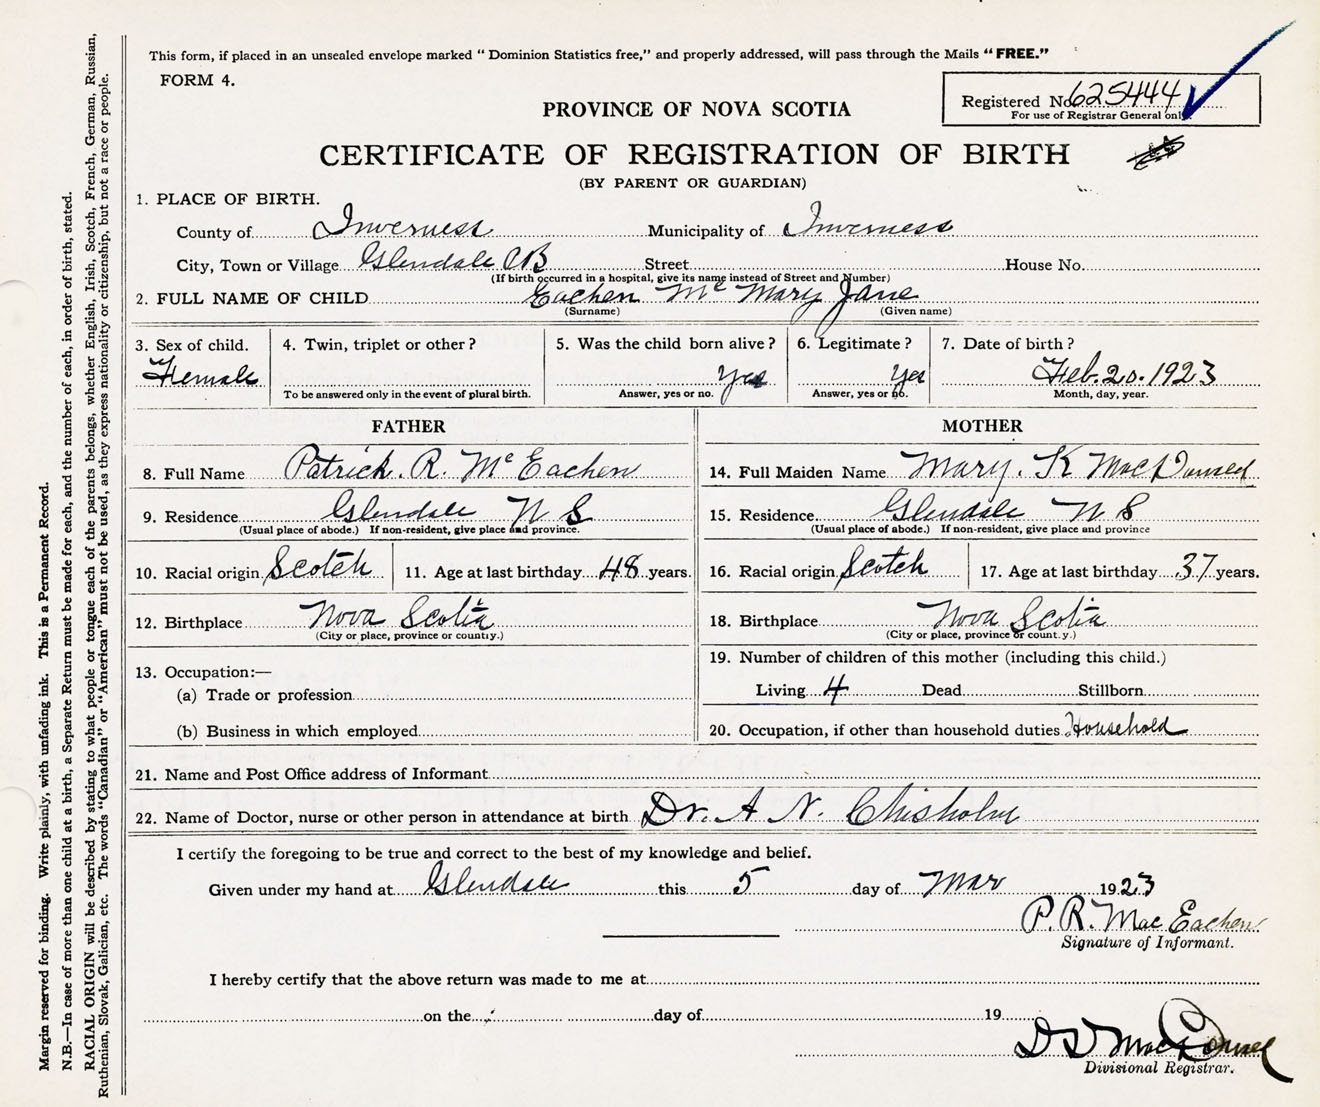 This form, if placed in an unsealed envelope marked "Dominion Statistics free," and properly addressed, will pass through the Mails "FREE."
FORM 4.
Registered No. 625444
For use of Registrar General only.
PROVINCE OF NOVA SCOTIA
CERTIFICATE OF REGISTRATION OF BIRTH
(BY PARENT OR GUARDIAN)
1. PLACE OF BIRTH.
County of Inverness Municipality of Inverness
City, Town or Village Glendale CB Street House No.
(If birth occurred in a hospital, give its name instead of Street and Number)
2. FULL NAME OF CHILD Eachen Mc Mary Jane
(Surname) (Given name)
3. Sex of child. 4. Twin, triplet or other? 5. Was the child born alive? 6. Legitimate? 7. Date of birth?
Female Yes Yes Feb. 20. 1923
To be answered only in the event of plural birth. Answer, yes or no. Answer, yes or no. Month, day, year.
FATHER
8. Full Name Patrick. R. Mc Eachen
9. Residence Glendale N S
(Usual place of abode.) If non-resident, give place and province.
10. Racial origin Scotch 11. Age at last birthday 48 years.
12. Birthplace Nova Scotia
(City or place, province or county.)
13. Occupation:—
(a) Trade or profession
(b) Business in which employed
MOTHER
14. Full Maiden Name Mary. K MacDonald
15. Residence Glendale N S
(Usual place of abode.) If non-resident, give place and province
16. Racial origin Scotch 17. Age at last birthday 37 years.
18. Birthplace Nova Scotia
(City or place, province or count.y.)
19. Number of children of this mother (including this child.)
Living 4 Dead Stillborn
20. Occupation, if other than household duties Household
21. Name and Post Office address of Informant
22. Name of Doctor, nurse or other person in attendance at birth Dr. A N. Chisholm
I certify the foregoing to be true and correct to the best of my knowledge and belief.
Given under my hand at Glendale this 5 day of Mar 1923
P. R. Mac Eachen
Signature of Informant.
I hereby certify that the above return was made to me at
on the day of 19
Divisional Registrar.
Margin reserved for binding. Write plainly, with unfading ink. This is a Permanent Record.
N.B.—In case of more than one child at a birth, a Separate Return must be made for each, and the number of each, in order of birth, stated.
RACIAL ORIGIN will be described by stating to what people or tongue each of the parents belongs, whether English, Irish, Scotch, French, German, Russian,
Ruthenian, Slovak, Galician, etc. The words "Canadian" or "American" must not be used, as they express nationality or citizenship, but not a race or people.